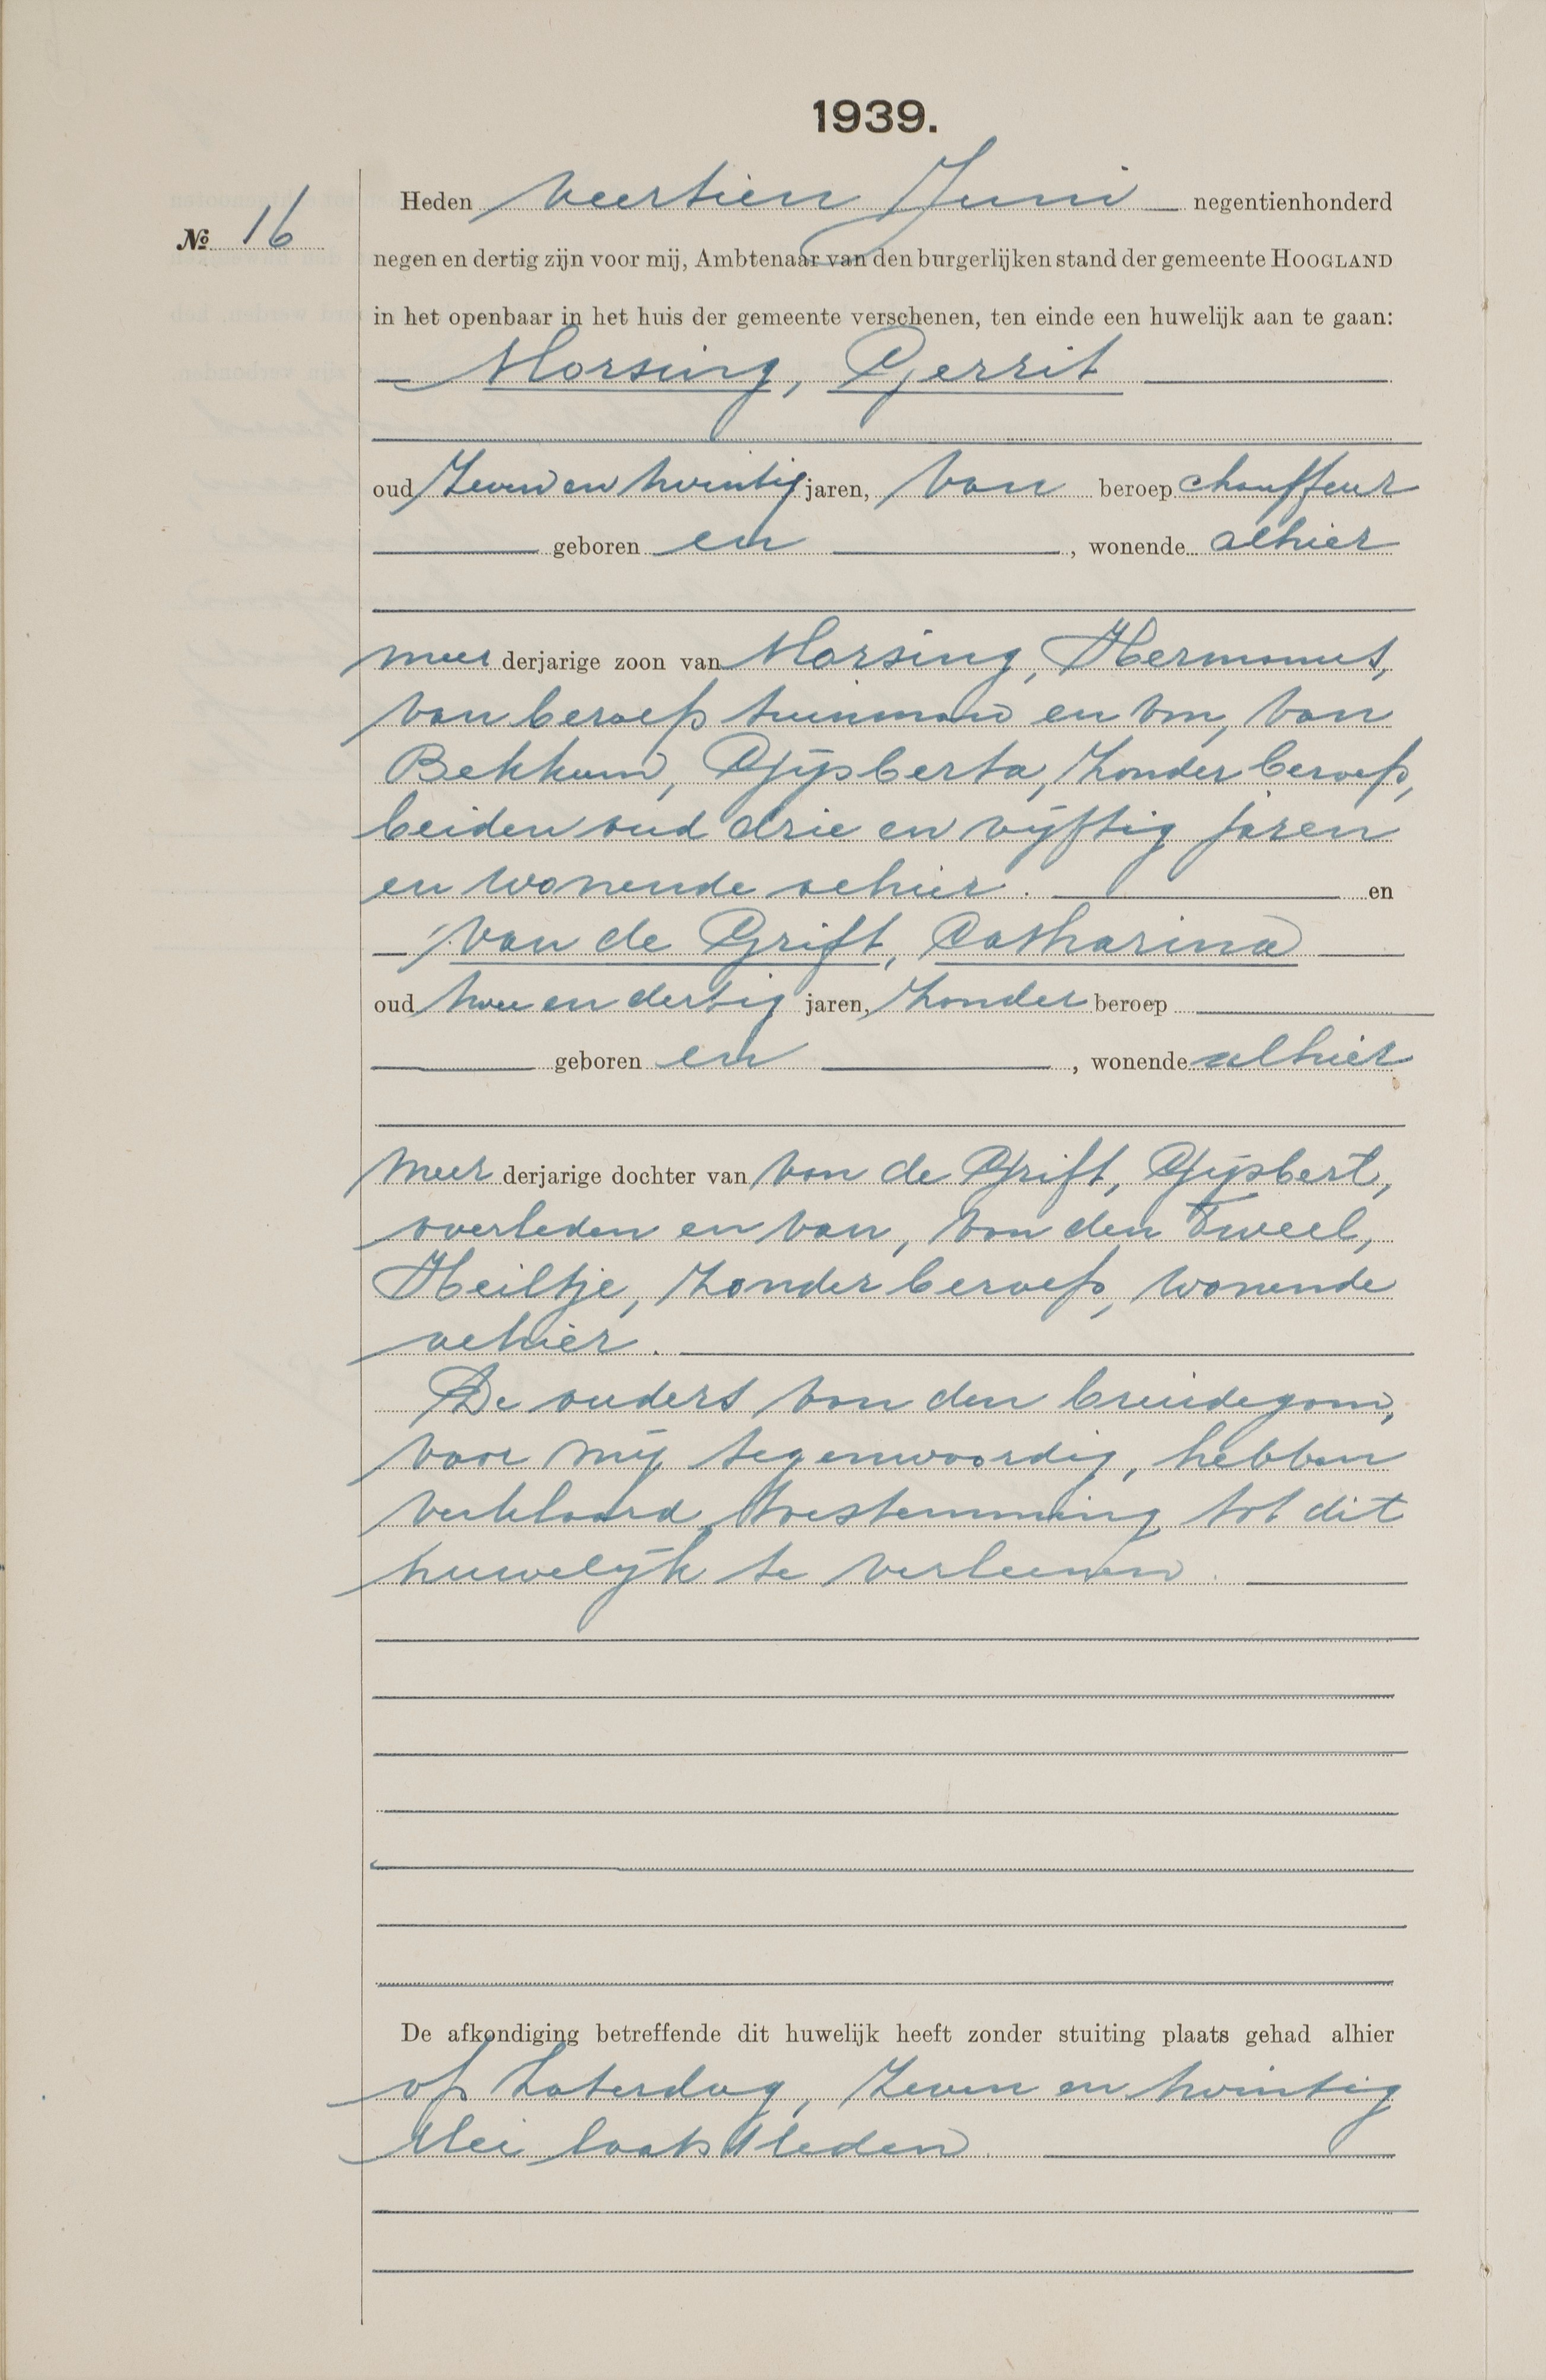 1939.
Heden veertien Juni negentienhonderd
№ 16
negen en dertig zijn voor mij, Ambtenaar van den burgerlijken stand der gemeente HOOGLAND
in het openbaar in het huis der gemeente verschenen, ten einde een huwelijk aan te gaan:
Morsing, Gerrit
oud Zeven en twintig jaren, van beroep chauffeur
geboren en , wonende alhier
meerderjarige zoon van Morsing, Hermanus,
van beroep tuinman en van, van
Bekkum, Gijsberta, zonder beroep,
beiden oud drie en vijftig jaren
en wonende alhier. en
van de Grift, Catharina
oud twee en dertig jaren, zonder beroep
geboren en , wonende alhier
meerderjarige dochter van van de Grift, Gijsbert,
overleden en van, van den Tweel,
Heiltje, zonder beroep, wonende
alhier.
De ouders van den bruidegom,
voor mij tegenwoordig, hebben
verklaard toestemming tot dit
huwelijk te verleenen.
De afkondiging betreffende dit huwelijk heeft zonder stuiting plaats gehad alhier
op Zaterdag, Zeven en twintig
Mei laatstleden.